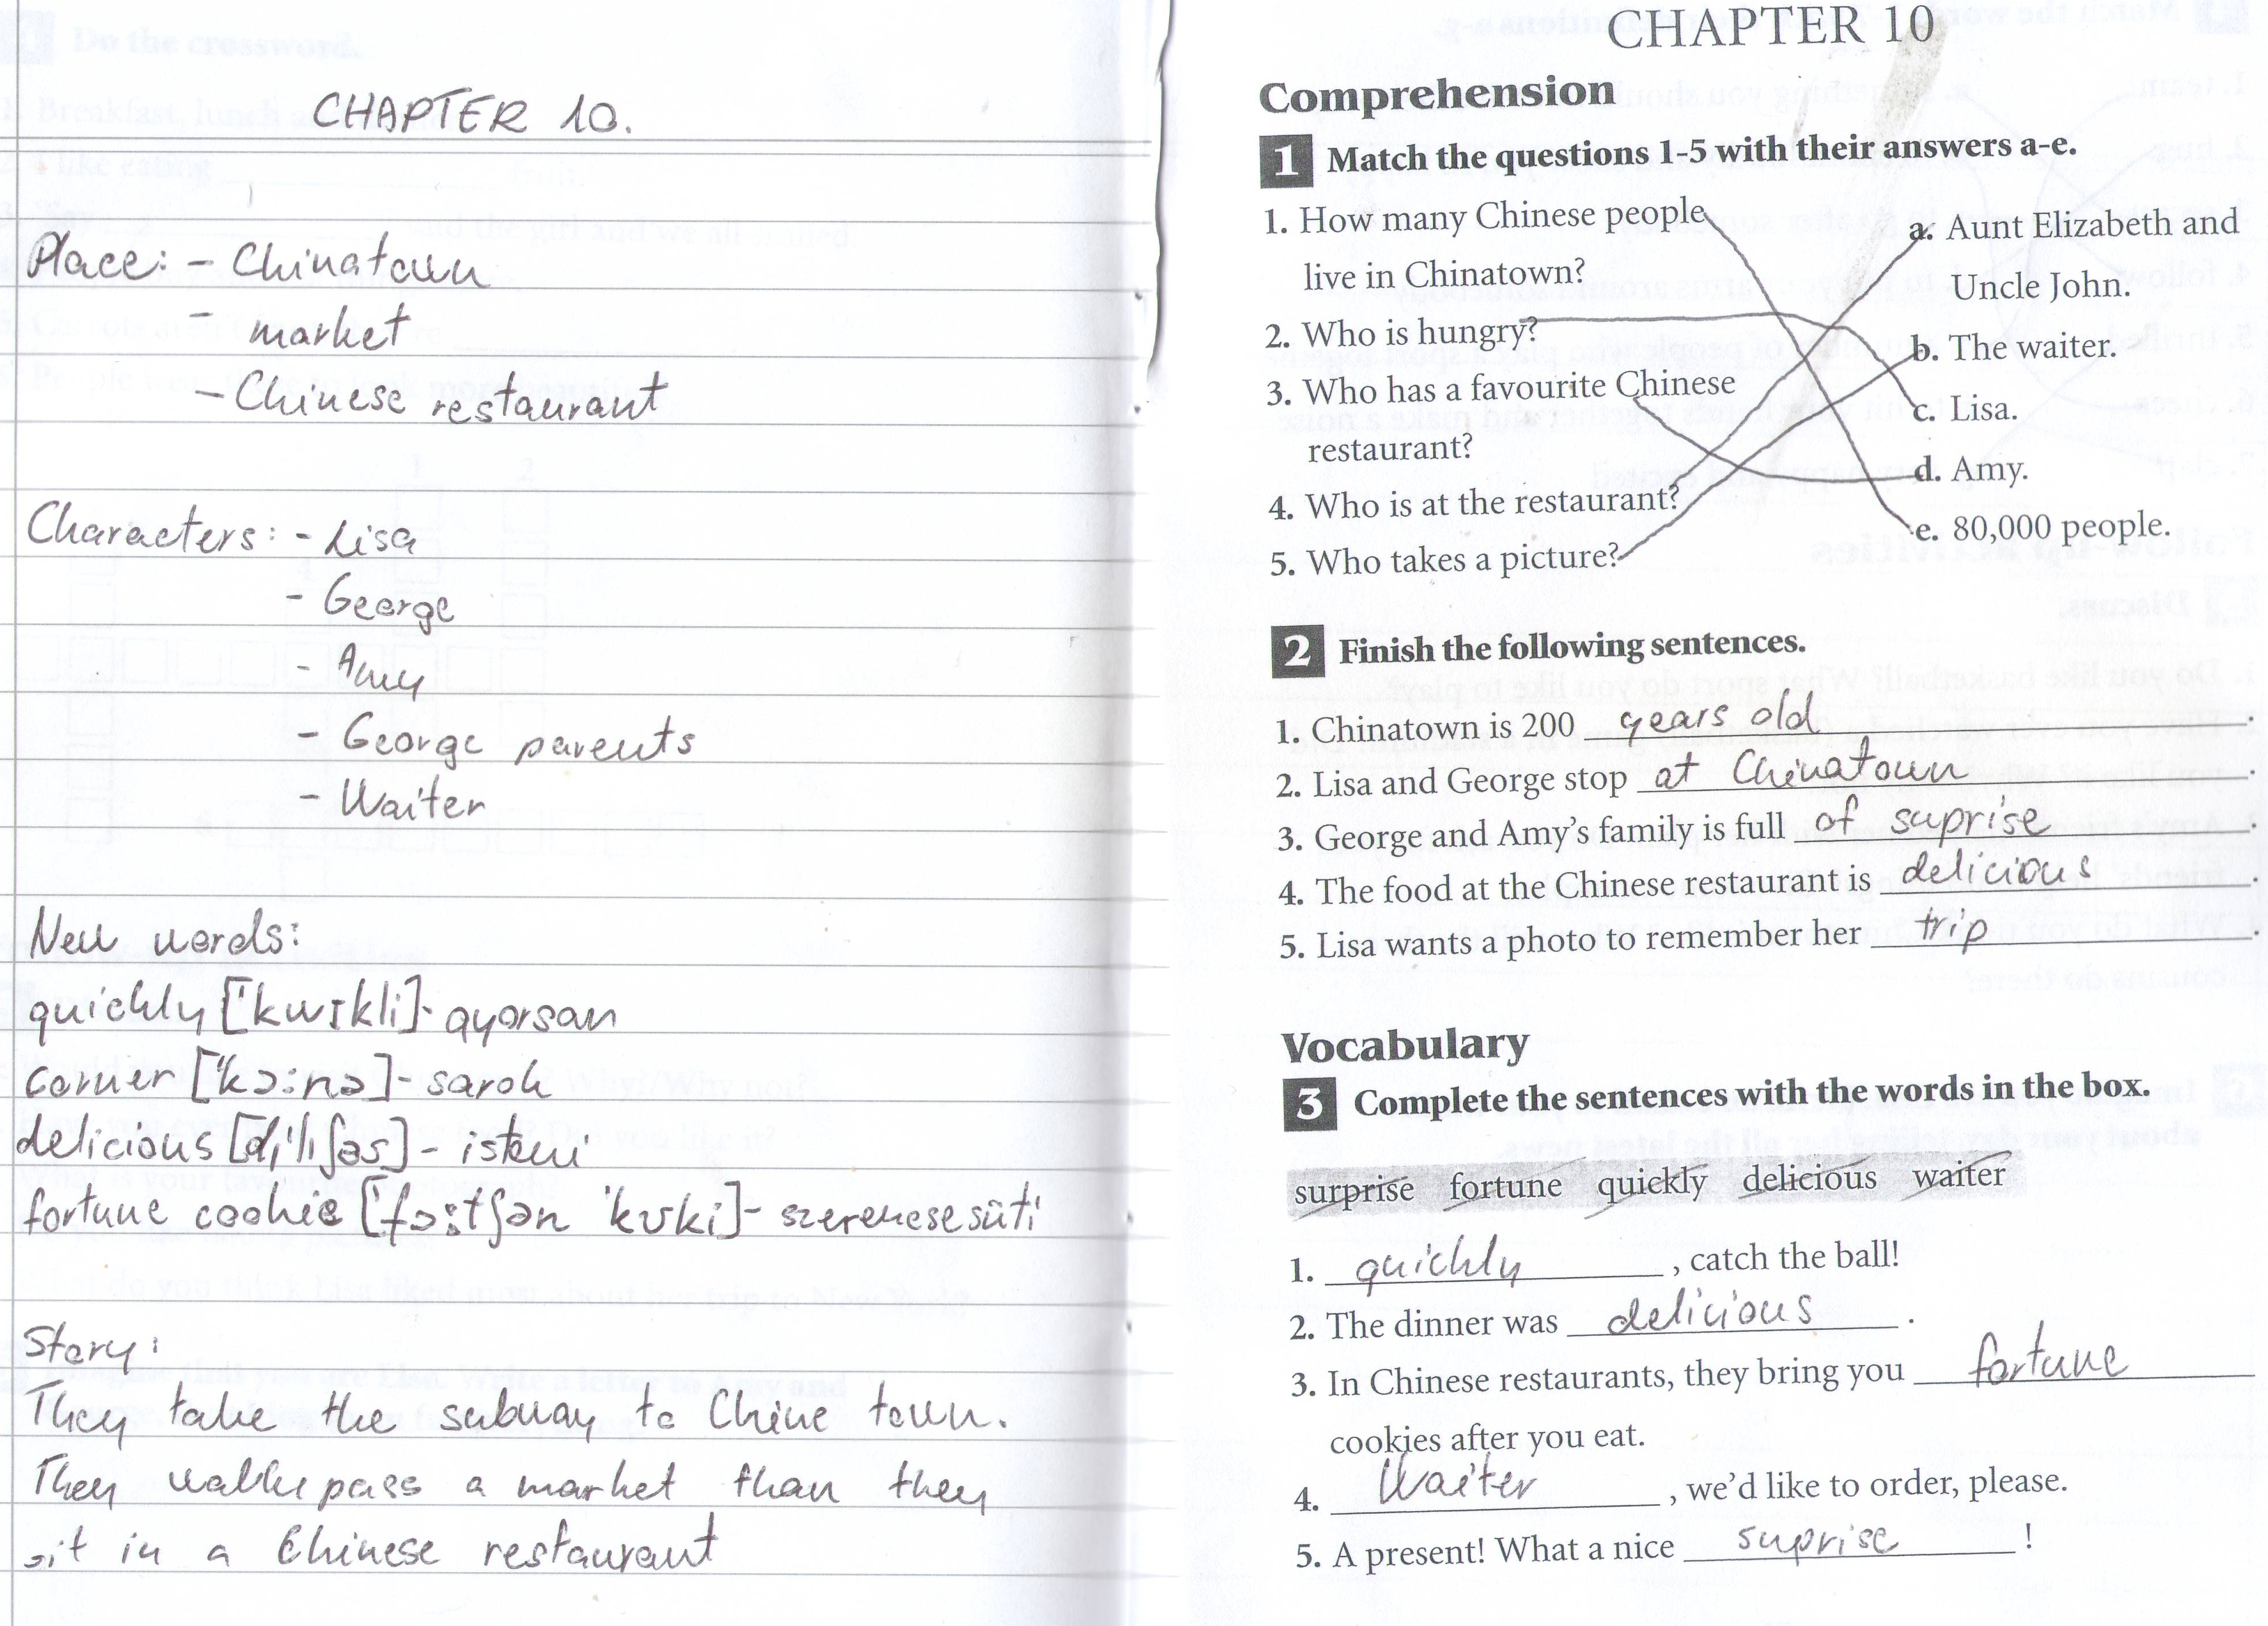 CHAPTER 10.
Place: - Chinatown
- market
- Chinese restaurant
Characters: - Lisa
- George
- Amy
- George parents
- Waiter
New words:
quickly ['kwɪkli] - gyorsan
corner ['kɔ:nə] - sarok
delicious [dɪ'lɪʃəs] - isteni
fortune cookie ['fɔ:tʃən 'kʊki] - szerencsesüti
Story:
They take the subway to Chine town.
They walk pass a market than they
sit in a Chinese restaurant
CHAPTER 10
Comprehension
1 Match the questions 1-5 with their answers a-e.
1. How many Chinese people
live in Chinatown?
2. Who is hungry?
3. Who has a favourite Chinese
restaurant?
4. Who is at the restaurant?
5. Who takes a picture?
a. Aunt Elizabeth and
Uncle John.
b. The waiter.
c. Lisa.
d. Amy.
e. 80,000 people.
2 Finish the following sentences.
1. Chinatown is 200 years old.
2. Lisa and George stop at Chinatown.
3. George and Amy's family is full of suprise.
4. The food at the Chinese restaurant is delicious.
5. Lisa wants a photo to remember her trip.
Vocabulary
3 Complete the sentences with the words in the box.
surprise fortune quickly delicious waiter
1. quickly, catch the ball!
2. The dinner was delicious.
3. In Chinese restaurants, they bring you fortune
cookies after you eat.
4. Waiter, we'd like to order, please.
5. A present! What a nice suprise!